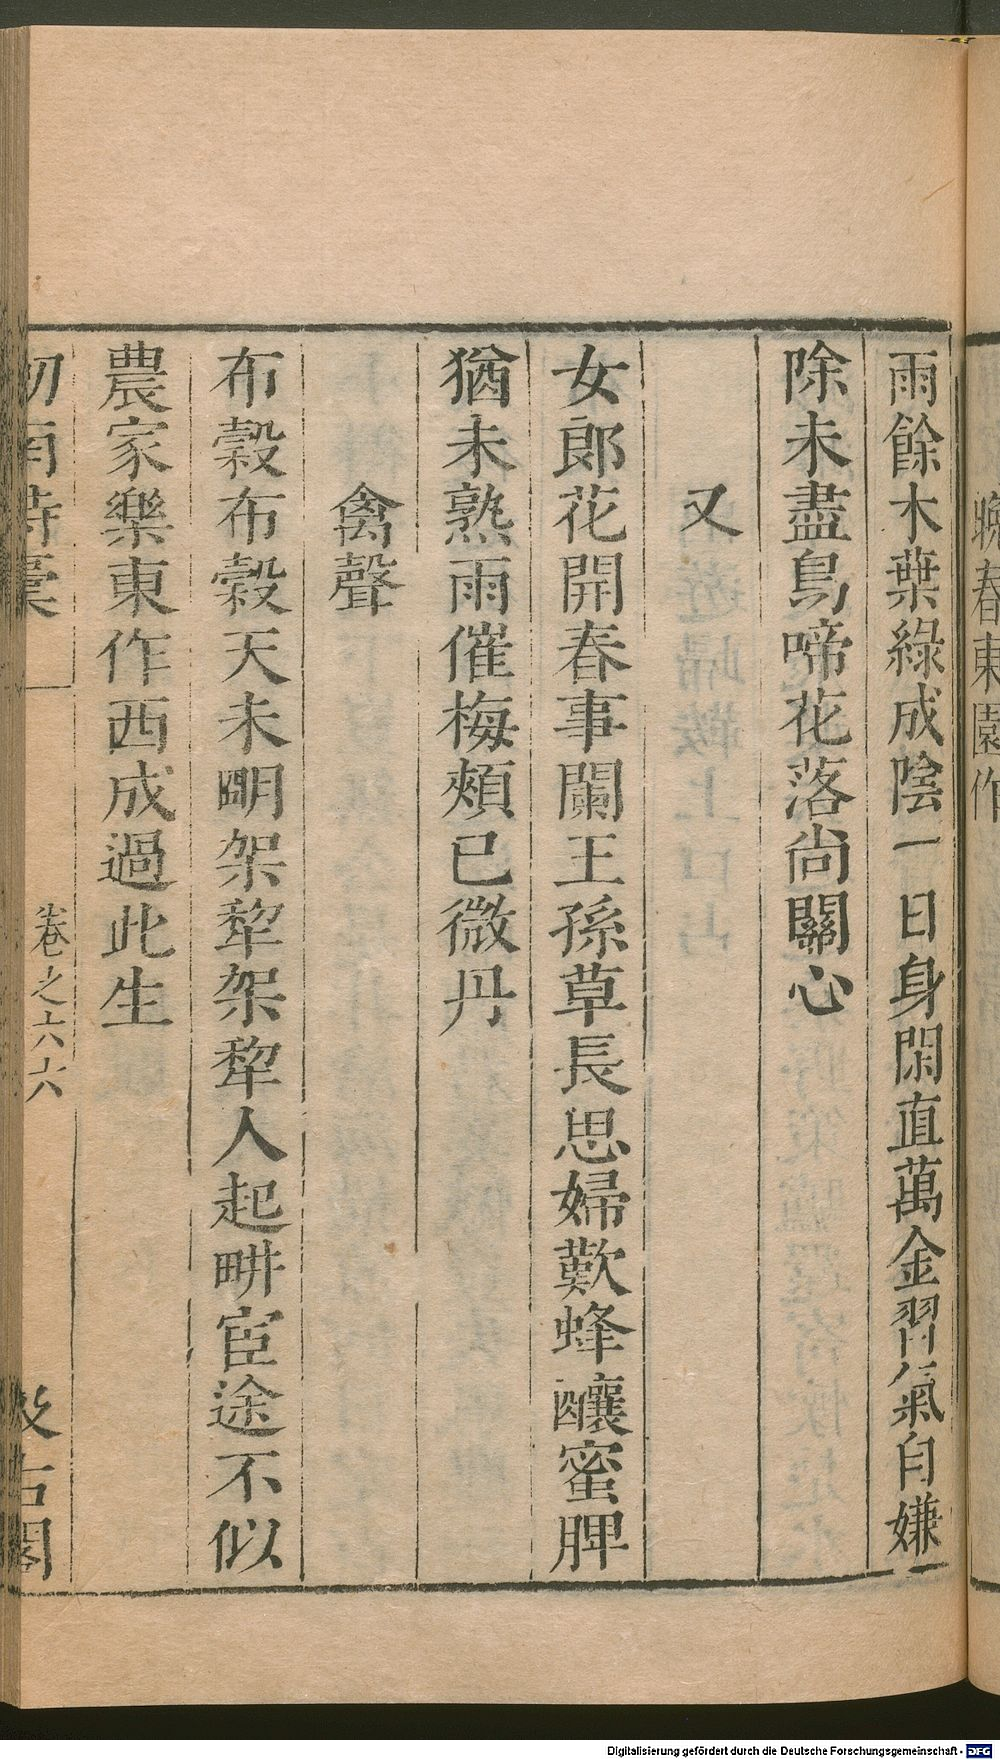 晚春東園作
雨餘木葉綠成陰一日身閑直萬金習氣自嫌
除未盡鳥啼花落尚關心
又
女郎花開春事闌王孫草長思婦歎蜂釀蜜脾
猶未熟雨催梅頰已微丹
禽聲
布穀布穀天未明架犂架犂人起畊宦途不似
農家樂東作西成過此生
劒南詩稾 卷之六六 汲古閣
Digitalisierung gefördert durch die Deutsche Forschungsgemeinschaft - DFG